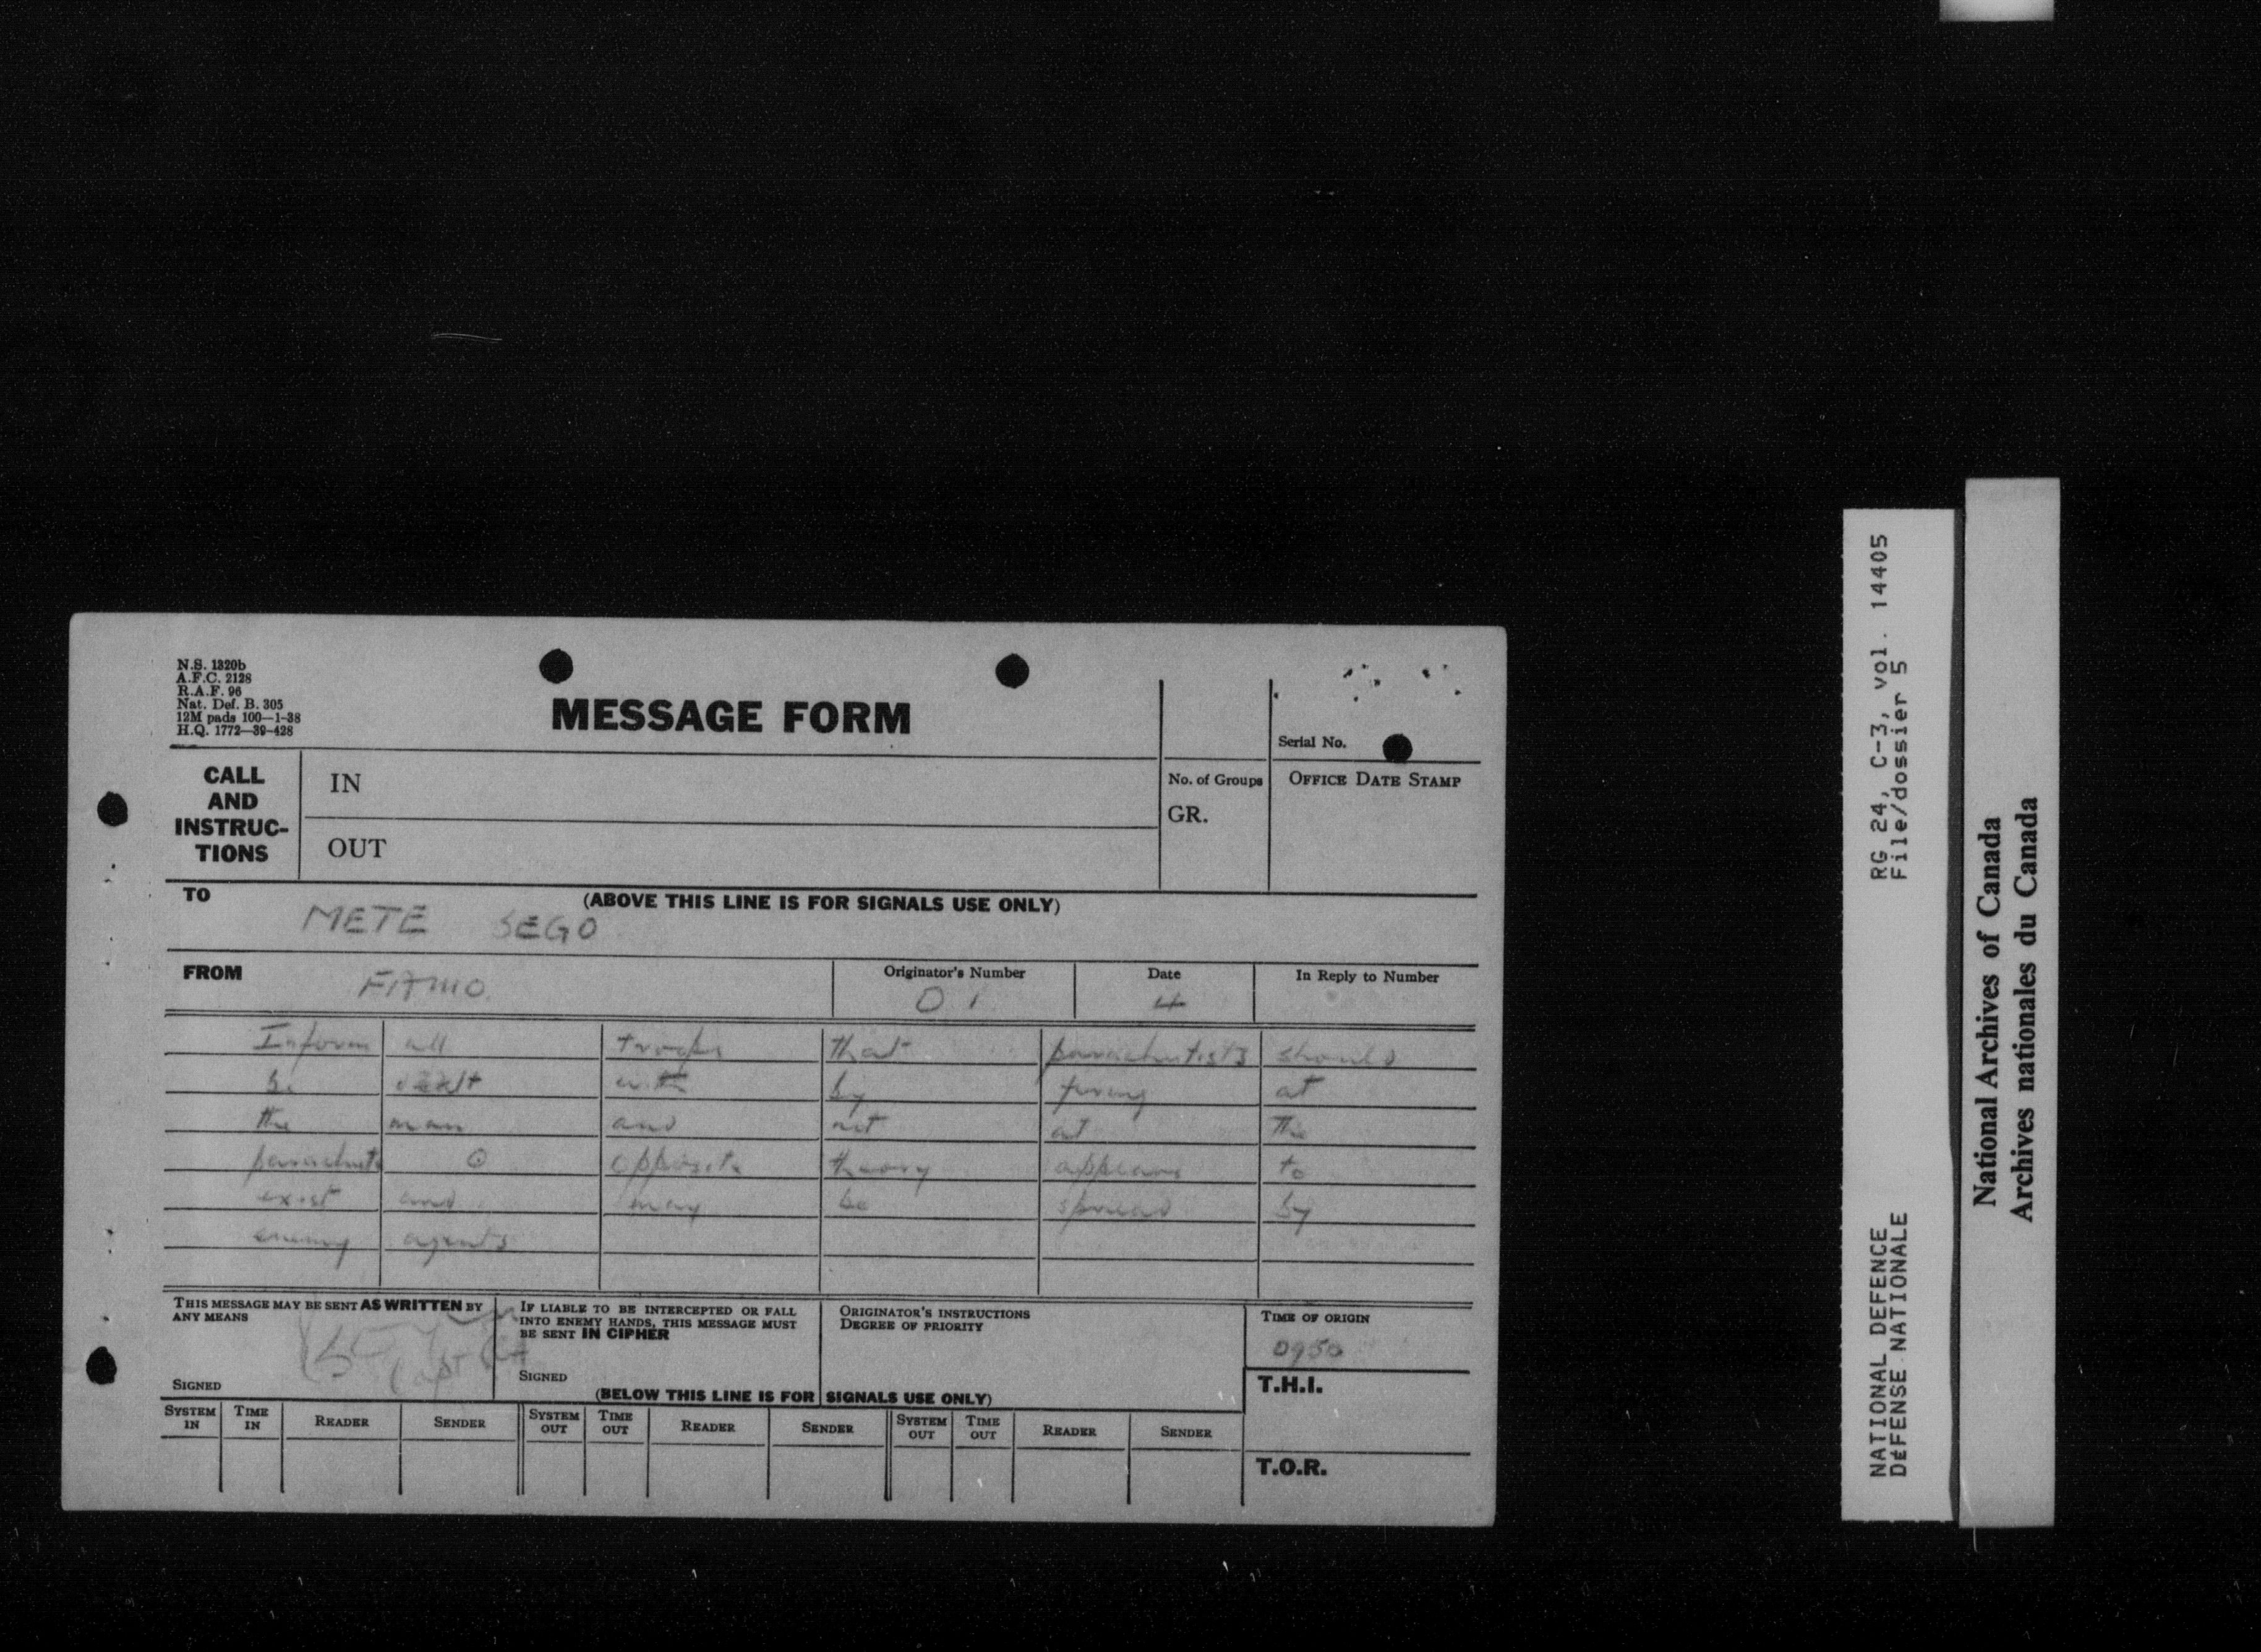 N.S. 1320b
A.F.C. 2128
R.A.F. 96
Nat. Def. B. 305
12M pads 100—1-38
H.Q. 1772—39-428
MESSAGE FORM
Serial No.
CALL AND INSTRUC-TIONS
IN
OUT
No. of Groups
GR.
OFFICE DATE STAMP
TO
(ABOVE THIS LINE IS FOR SIGNALS USE ONLY)
METE SEGO
FROM
FAMO
Originator's Number
O 1
Date
4
In Reply to Number
Inform all troops that parachutists should
be dealt with by firing at
the man and not at the
parachute ⊙ opposite theory appears to
exist and may be spread by
enemy agents
THIS MESSAGE MAY BE SENT AS WRITTEN BY
ANY MEANS
Capt
SIGNED
IF LIABLE TO BE INTERCEPTED OR FALL
INTO ENEMY HANDS, THIS MESSAGE MUST
BE SENT IN CIPHER
SIGNED
ORIGINATOR'S INSTRUCTIONS
DEGREE OF PRIORITY
TIME OF ORIGIN
0950
T.H.I.
(BELOW THIS LINE IS FOR SIGNALS USE ONLY)
SYSTEM IN TIME IN READER SENDER SYSTEM OUT TIME OUT READER SENDER SYSTEM OUT TIME OUT READER SENDER
T.O.R.
RG 24, C-3, vol. 14405
File/dossier 5
NATIONAL DEFENCE
DéFENSE NATIONALE
National Archives of Canada
Archives nationales du Canada